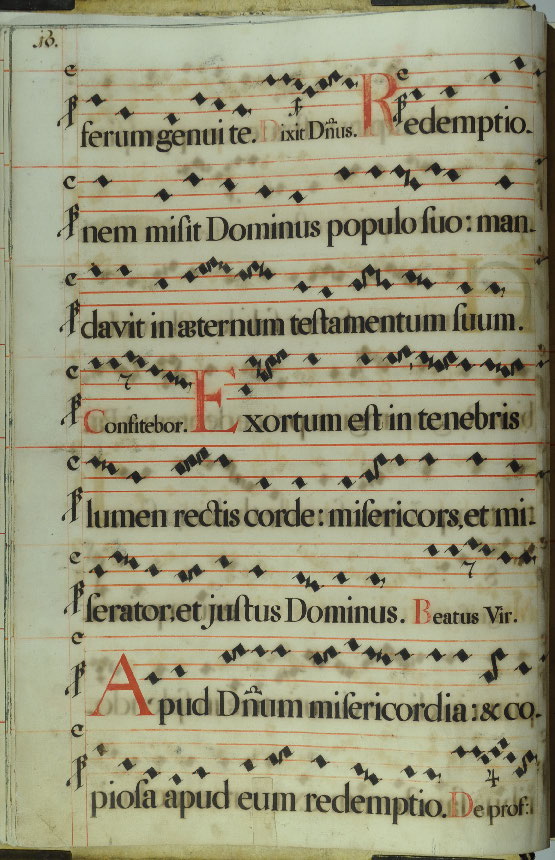 38.
ferum genui te. Dixit Dn̄us. Redemptio-
nem miſit Dominus populo ſuo: man-
davit in æternum teſtamentum ſuum.
Confitebor. Exortum eſt in tenebris
lumen rectis corde: miſericors, et mi-
ſerator. et juſtus Dominus. Beatus Vir.
Apud Dn̄um miſericordia: & co-
pioſa apud eum redemptio. De prof: